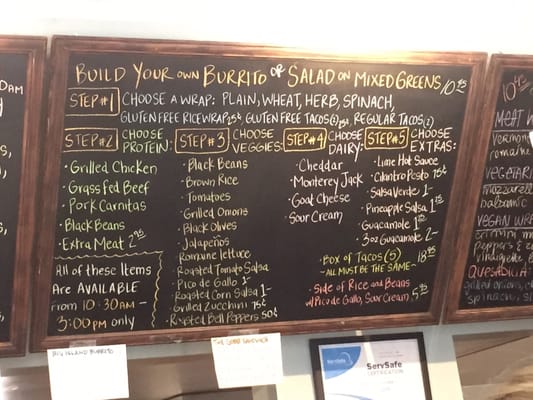 Build Your own Burrito or Salad on Mixed Greens 10.95
Step #1 Choose a wrap: Plain, Wheat, Herb, Spinach,
Gluten Free Tacos Regular Tacos
Step #2 Choose Protein:
· Grilled Chicken
· Grass fed Beef
· Pork Carnitas
· Black Beans
· Extra Meat
All of these Items
Are Available
from 10:30am -
3:00pm only
Step #3 Choose Veggies:
· Black Beans
· Brown Rice
· Tomatoes
· Grilled Onions
· Black Olives
· Jalapeños
· Romaine lettuce
· Roasted Tomato Salsa
· Pico de Gallo 1-
· Roasted Corn Salsa 1-
· Grilled Zucchini 75¢
· Roasted Bell Peppers 50¢
Step #4 Choose Dairy:
· Cheddar
· Monterey Jack
· Goat Cheese
· Sour Cream
Step #5 Choose Extras:
· Lime Hot Sauce
· Cilantro Pesto 75¢
· Salsa Verde 1-
· Pineapple Salsa
· Guacamole
· 3oz Guacamole 2-
· Box of Tacos (5) 18.95
- All must be the same -
· Side of Rice and Beans
w/ Pico de Gallo, Sour Cream 5.95
Meat
Vegetari
mozzarell
balsamic
Vegan Wra
Peppers & e
vinaigre
Quesadilla:
grilled onions,
spinach,
ServSafe
CERTIFICATION